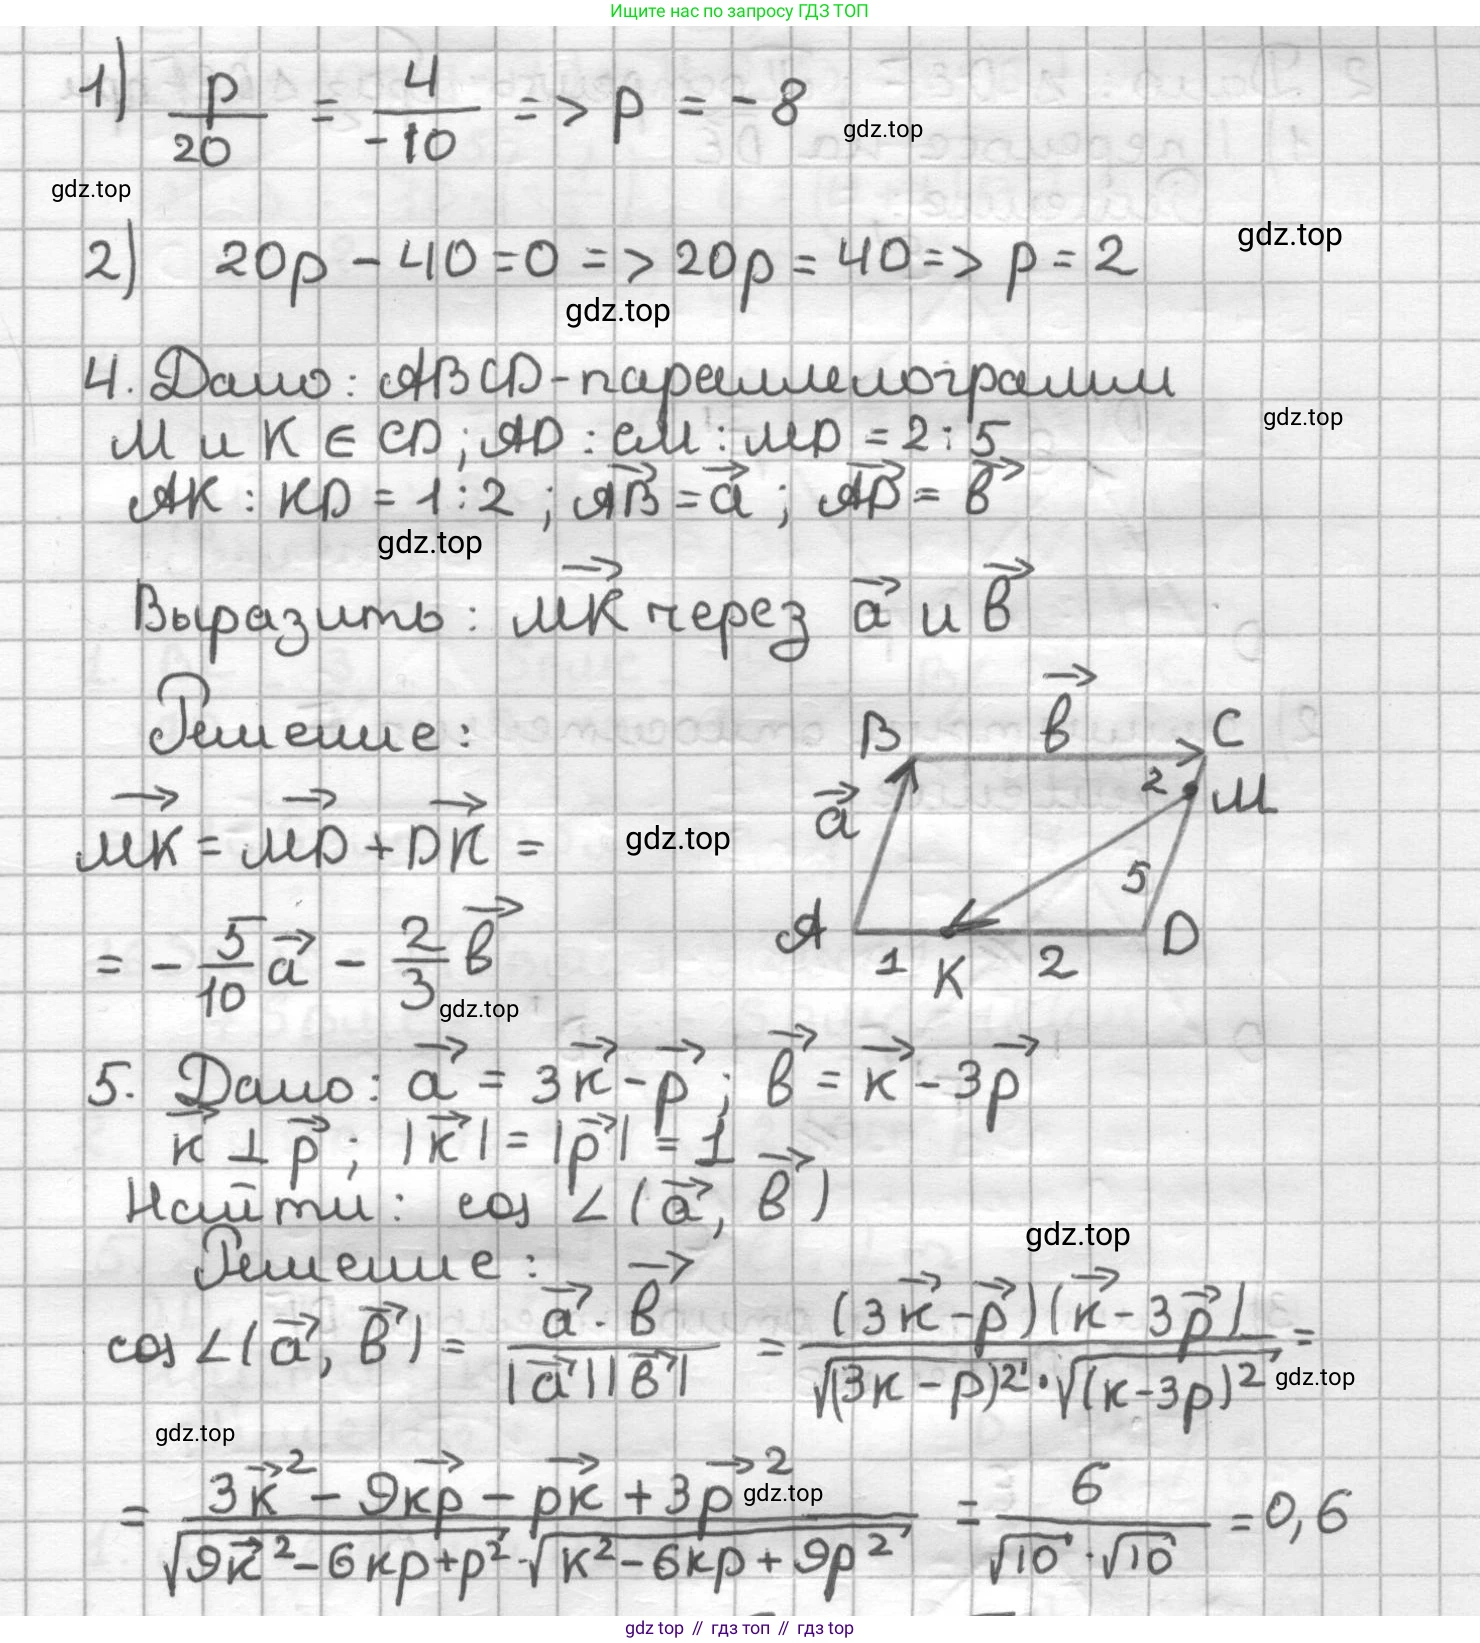 Ищите нас по запросу ГДЗ ТОП
1) p/20 = 4/-10 => p = -8
gdz.top
gdz.top
2) 20p - 40 = 0 => 20p = 40 => p = 2
gdz.top
gdz.top
4. Дано: ABCD - параллелограмм
M и K ∈ CD; AD : CM : MD = 2 : 5
gdz.top
AK : KD = 1 : 2; AB→ = a→; AD→ = b→
gdz.top
Выразить: MK→ через a→ и b→
Решение:
b→
B C
2 M
a→
MK→ = MD→ + DK→ =
gdz.top
5
A D
1 K 2
= - 5/10 a→ - 2/3 b→
gdz.top
5. Дано: a→ = 3k→ - p→; b→ = k→ - 3p→
k→ ⊥ p→; |k→| = |p→| = 1
Найти: cos ∠(a→, b→)
gdz.top
Решение:
cos ∠(a→, b→) = a→ · b→ / |a→||b→| = (3k→ - p→)(k→ - 3p→) / √(3k - p)² · √(k - 3p)² =
gdz.top
gdz.top
= 3k→² - 9kp→ - pk→ + 3p→² / √9k→² - 6kp + p² · √k² - 6kp + 9p² = 6 / √10 · √10 = 0,6
gdz.top
gdz top // гдз топ // гдз top